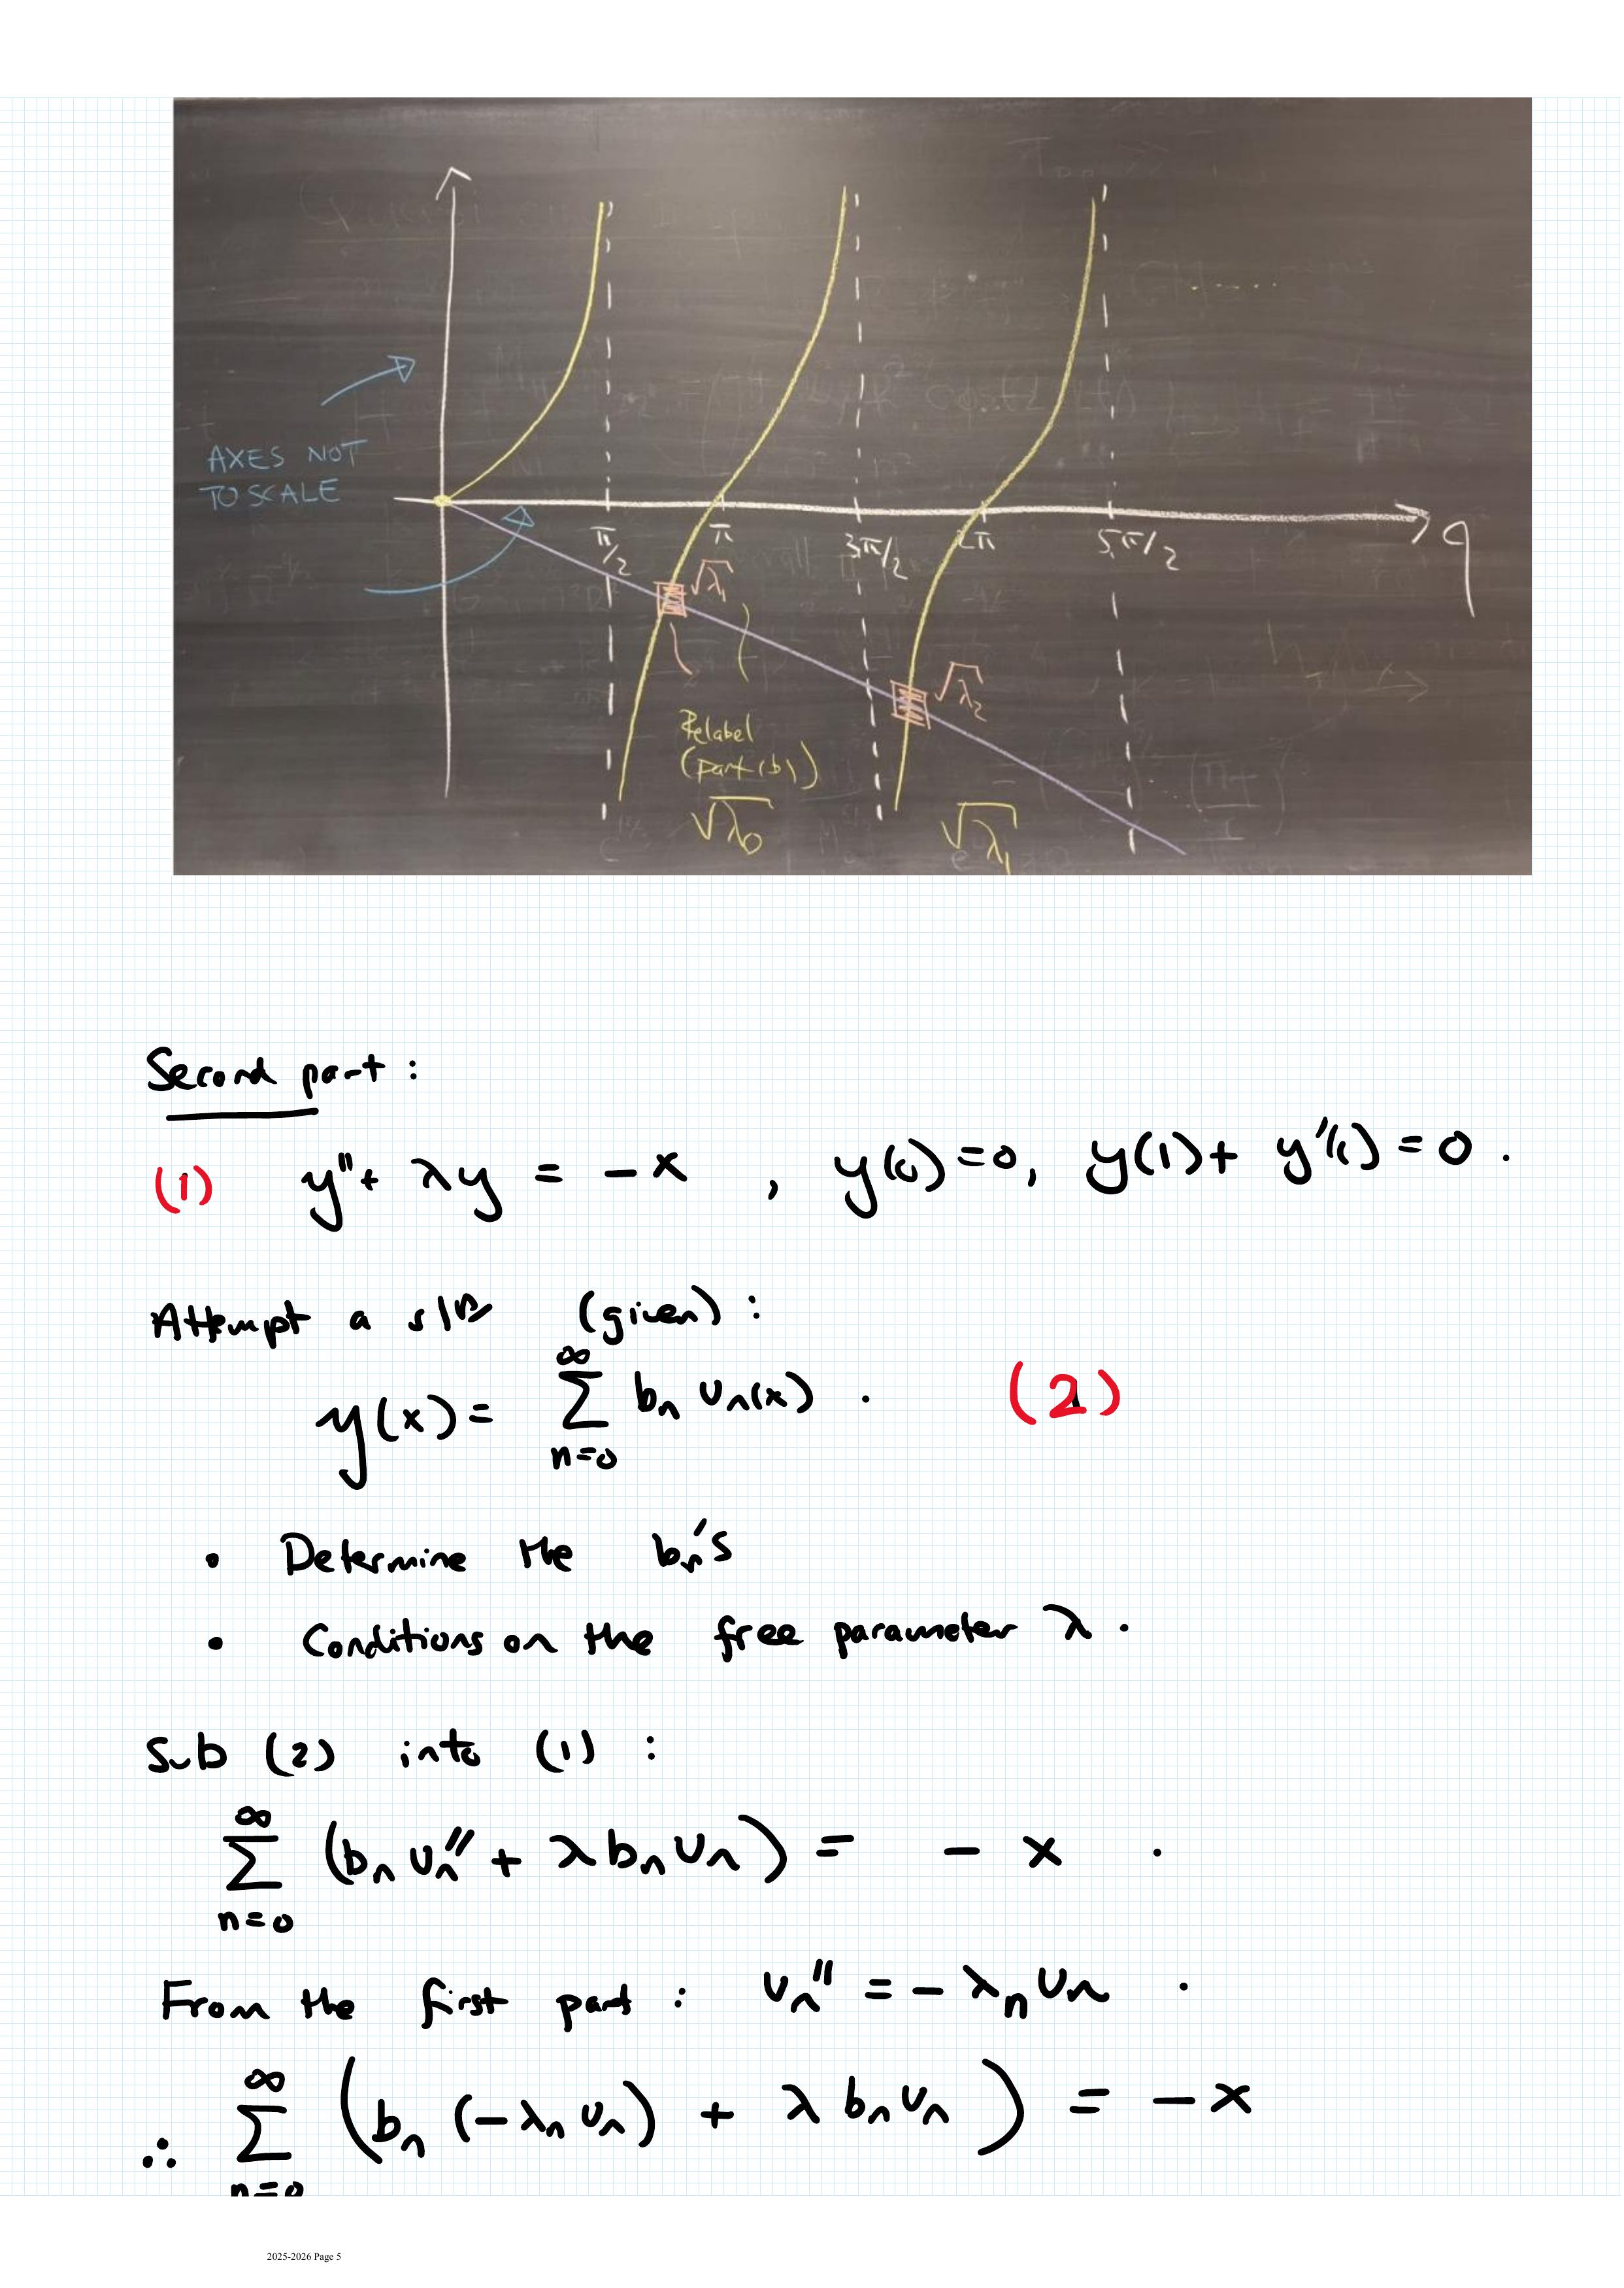 AXES NOT
TO SCALE
π/2 π 3π/2 2π 5π/2 q
√λ₁
√λ₂
Relabel
(part (b))
√λ₀ √λ₁
Second part :
(1) y'' + λy = -x , y(0)=0, y(1)+ y'(1) = 0 .
Attempt a sln (given) :
y(x) = ∑_{n=0}^{∞} bₙ uₙ(x) . (2)
• Determine the bₙ's
• Conditions on the free parameter λ .
Sub (2) into (1) :
∑_{n=0}^{∞} (bₙ uₙ'' + λ bₙ uₙ) = - x .
From the first part : uₙ'' = - λₙ uₙ .
∴ ∑_{n=0}^{∞} (bₙ (-λₙ uₙ) + λ bₙ uₙ) = - x
2025-2026 Page 5